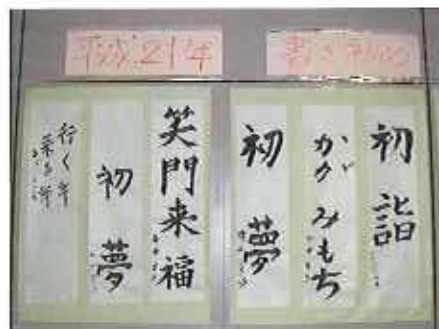 平成21年
書き初め
初詣
かがみもち
初夢
笑門来福
初夢
行く年
来る年